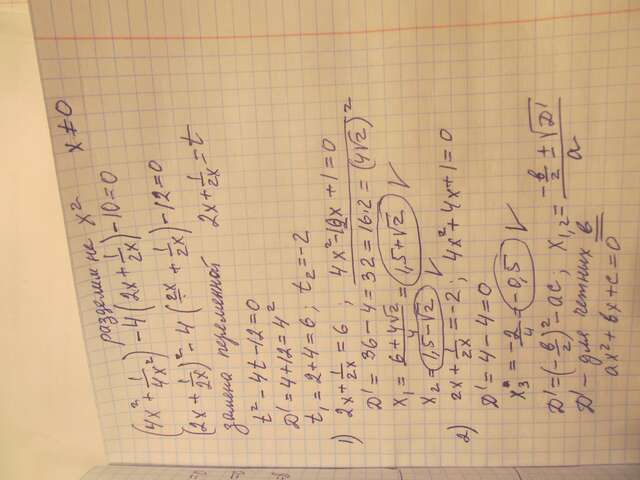 разделим на x² x ≠ 0
(4x² + 1/4x²) - 4(2x + 1/2x) - 10 = 0
(2x + 1/2x)² - 4(2x + 1/2x) - 12 = 0
замена переменной 2x + 1/2x = t
t² - 4t - 12 = 0
D' = 4 + 12 = 4²
t₁ = 2 + 4 = 6; t₂ = -2
1) 2x + 1/2x = 6; 4x² - 12x + 1 = 0
D' = 36 - 4 = 32 = 16·2 = (4√2)²
x₁ = (6 + 4√2)/4 = 1,5 + √2 √
x₂ = 1,5 - √2 √
2) 2x + 1/2x = -2; 4x² + 4x + 1 = 0
D' = 4 - 4 = 0
x₃ = -2/4 = -0,5 √
D' = (-b/2)² - ac; x₁,₂ = (-b/2 ± √D')/a
D' - для четных b
ax² + bx + c = 0